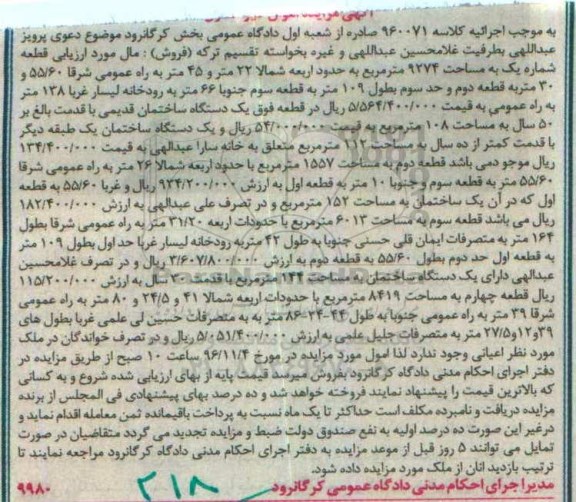 به موجب اجرائیه کلاسه ۹۶۰۰۷۱ صادره از شعبه اول دادگاه عمومی بخش کرگانرود موضوع دعوی پرویز
عبداللهی بطرفیت غلامحسین عبداللهی و غیره بخواسته تقسیم ترکه (فروش) : مال مورد ارزیابی قطعه
شماره یک به مساحت ۹۲۷۴ مترمربع به حدود اربعه شمالا ۲۲ متر و ۴۵ متر به راه عمومی شرقا ۵۵/۶۰ و
۳۰ متربه قطعه دوم و حد سوم بطول ۱۰۹ متر به قطعه سوم جنوبا ۶۶ متر به رودخانه لیسار غربا ۱۳۸ متر
به راه عمومی به قیمت ۵/۵۶۴/۴۰۰/۰۰۰ ریال در قطعه فوق یک دستگاه ساختمان قدیمی با قدمت بالغ بر
۵۰ سال به مساحت ۱۰۸ مترمربع به قیمت ۵۴/۰۰۰/۰۰۰ ریال و یک دستگاه ساختمان یک طبقه دیگر
با قدمت کمتر از ده سال به مساحت ۱۱۲ مترمربع متعلق به خانه سارا عبدالهی به قیمت ۱۳۴/۴۰۰/۰۰۰
ریال موجو دمی باشد قطعه دوم به مساحت ۱۵۵۷ مترمربع با حدود اربعه شمالا ۲۶ متر به راه عمومی شرقا
۵۵/۶۰ متر به قطعه سوم و جنوبا ۱۰ متر به قطعه اول به ارزش ۹۳۴/۲۰۰/۰۰۰ ریال و غربا ۵۵/۶۰ به قطعه
اول که در آن یک ساختمان به مساحت ۱۵۲ مترمربع و در تصرف علی عبدالهی به ارزش ۱۸۲/۴۰۰/۰۰۰
ریال می باشد قطعه سوم به مساحت ۶۰۱۳ مترمربع با حدودات اربعه ۳۱/۲۰ متر به راه عمومی شرقا بطول
۱۶۴ متر به متصرفات ایمان قلی حسنی جنوبا به طول ۴۲ متربه رودخانه لیسار غربا حد اول بطول ۱۰۹ متر
به قطعه اول حد دوم بطول ۵۵/۶۰ به قطعه دوم به ارزش ۳/۶۰۷/۸۰۰/۰۰۰ ریال و در تصرف غلامحسین
عبدالهی دارای یک دستگاه ساختمان به مساحت ۱۴۴ مترمربع با قدمت ۳۰ سال به ارزش ۱۱۵/۲۰۰/۰۰۰
ریال قطعه چهارم به مساحت ۸۴۱۹ مترمربع با حدودات اربعه شمالا ۴۱ و ۲۴/۵ و ۸۰ متر به راه عمومی
شرقا ۳۹ متر به راه عمومی جنوبا به طول ۴۴-۲۴-۸۶ متر به به متصرفات حسین لی علمی غربا بطول های
۳۹و۱۲و۲۷/۵ متر به متصرفات جلیل علمی به ارزش ۵/۰۵۱/۴۰۰/۰۰۰ ریال و در تصرف خواندگان در ملک
مورد نظر اعیانی وجود ندارد لذا امول مورد مزایده در مورخ ۹۶/۱۱/۴ ساعت ۱۰ صبح از طریق مزایده در
دفتر اجرای احکام مدنی دادگاه کرگانرود بفروش میرسد قیمت پایه از بهای ارزیابی شده شروع و به کسانی
که بالاترین قیمت را پیشنهاد نمایند فروخته خواهد شد و ده درصد بهای پیشنهادی فی المجلس از برنده
مزایده دریافت و نامبرده مکلف است حداکثر تا یک ماه نسبت به پرداخت باقیمانده ثمن معامله اقدام نماید و
درغیر این صورت ده درصد اولیه به نفع صندوق دولت ضبط و مزایده تجدید می گردد متقاضیان در صورت
تمایل می توانند ۵ روز قبل از موعد مزایده به دفتر اجرای احکام مدنی دادگاه کرگانرود مراجعه نمایند تا
ترتیب بازدید انان از ملک مورد مزایده داده شود.
مدیراجرای احکام مدنی دادگاه عمومی کرگانرود ۲۱۸ ۹۹۸۰